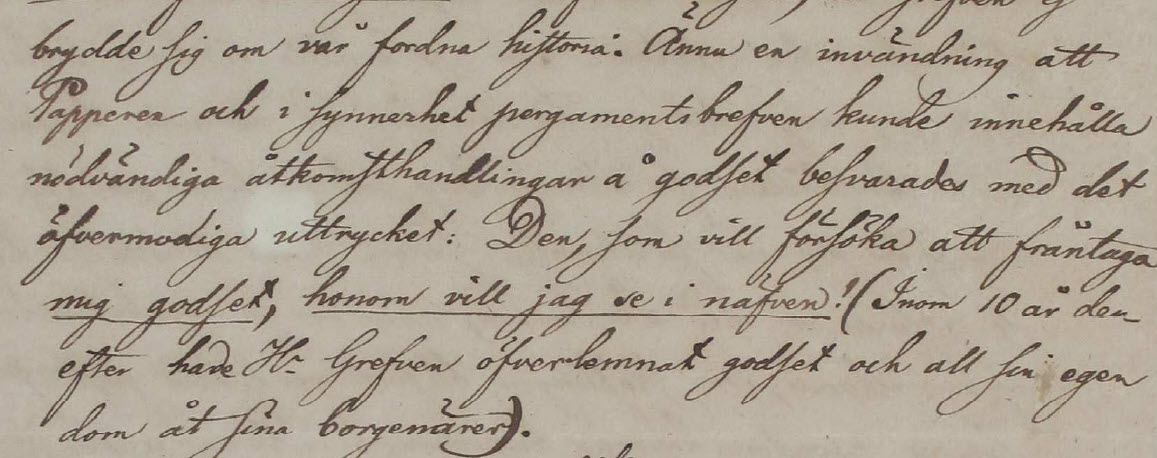 brydde sig om vår fordna historia. Ännu en invändning att
Papperen och i synnerhet pergamentsbrefven kunde innehålla
nödvändiga åtkomsthandlingar å godset besvarades med det
öfvermodiga uttrycket: Den, som vill försöka att fråntaga
mig godset, honom vill jag se i näfven! (Inom 10 år der-
efter hade Hr Grefven öfverlemnat godset och all sin egen
dom åt sina borgenärer).